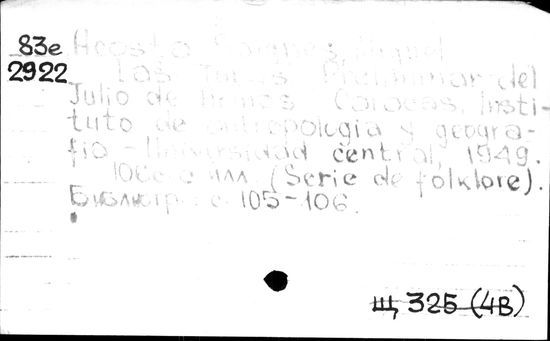 83e
2922
Acosta Saignes, Miguel
Las Turas. Preliminar del
Julio de Armas. Caracas, Insti-
tuto de antropologia y geogra-
fio - Universidad central, 1949.
106c. с илл. (Serie de folklore).
Библиогр: с. 105-106.
Щ 325 (4В)